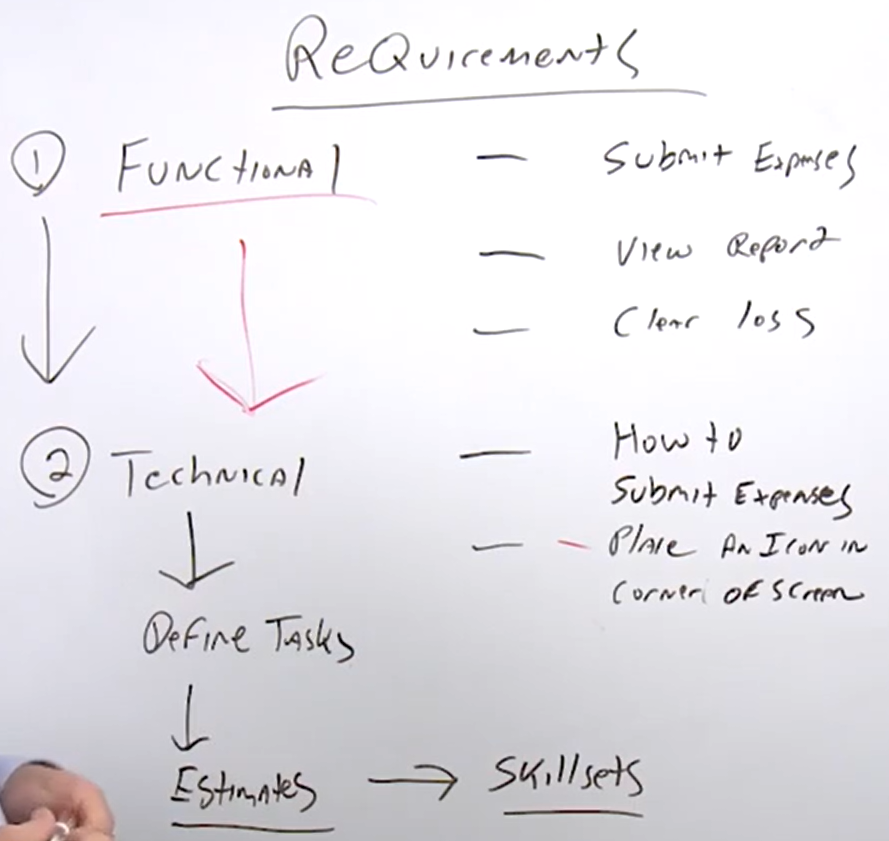 Requirements
1 Functional — Submit Expenses
— View Report
— Clear loss
2 Technical — How to
Submit Expenses
— – Place An Icon in
Corner of Screen
Define Tasks
Estimates → Skillsets